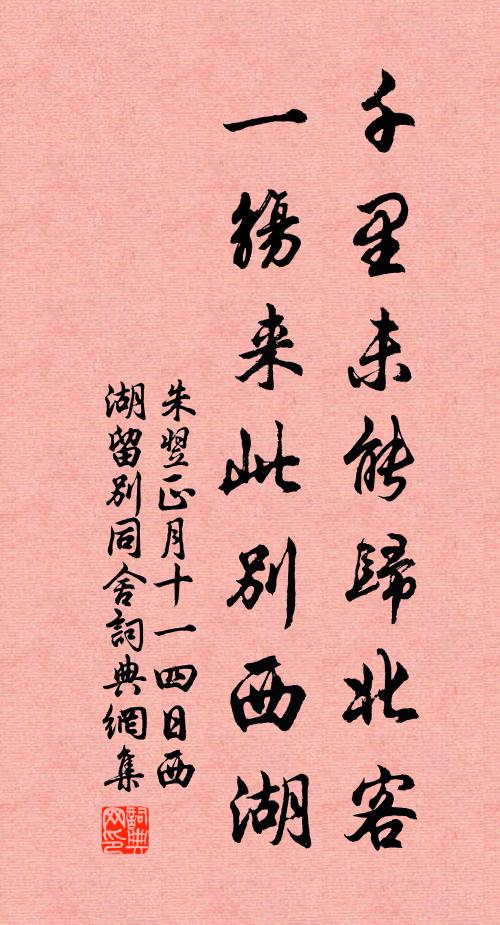 千里未能歸北客
一觴來此別西湖
朱翌正月十一四日西
湖留別同舍詞典網集
詞典网印